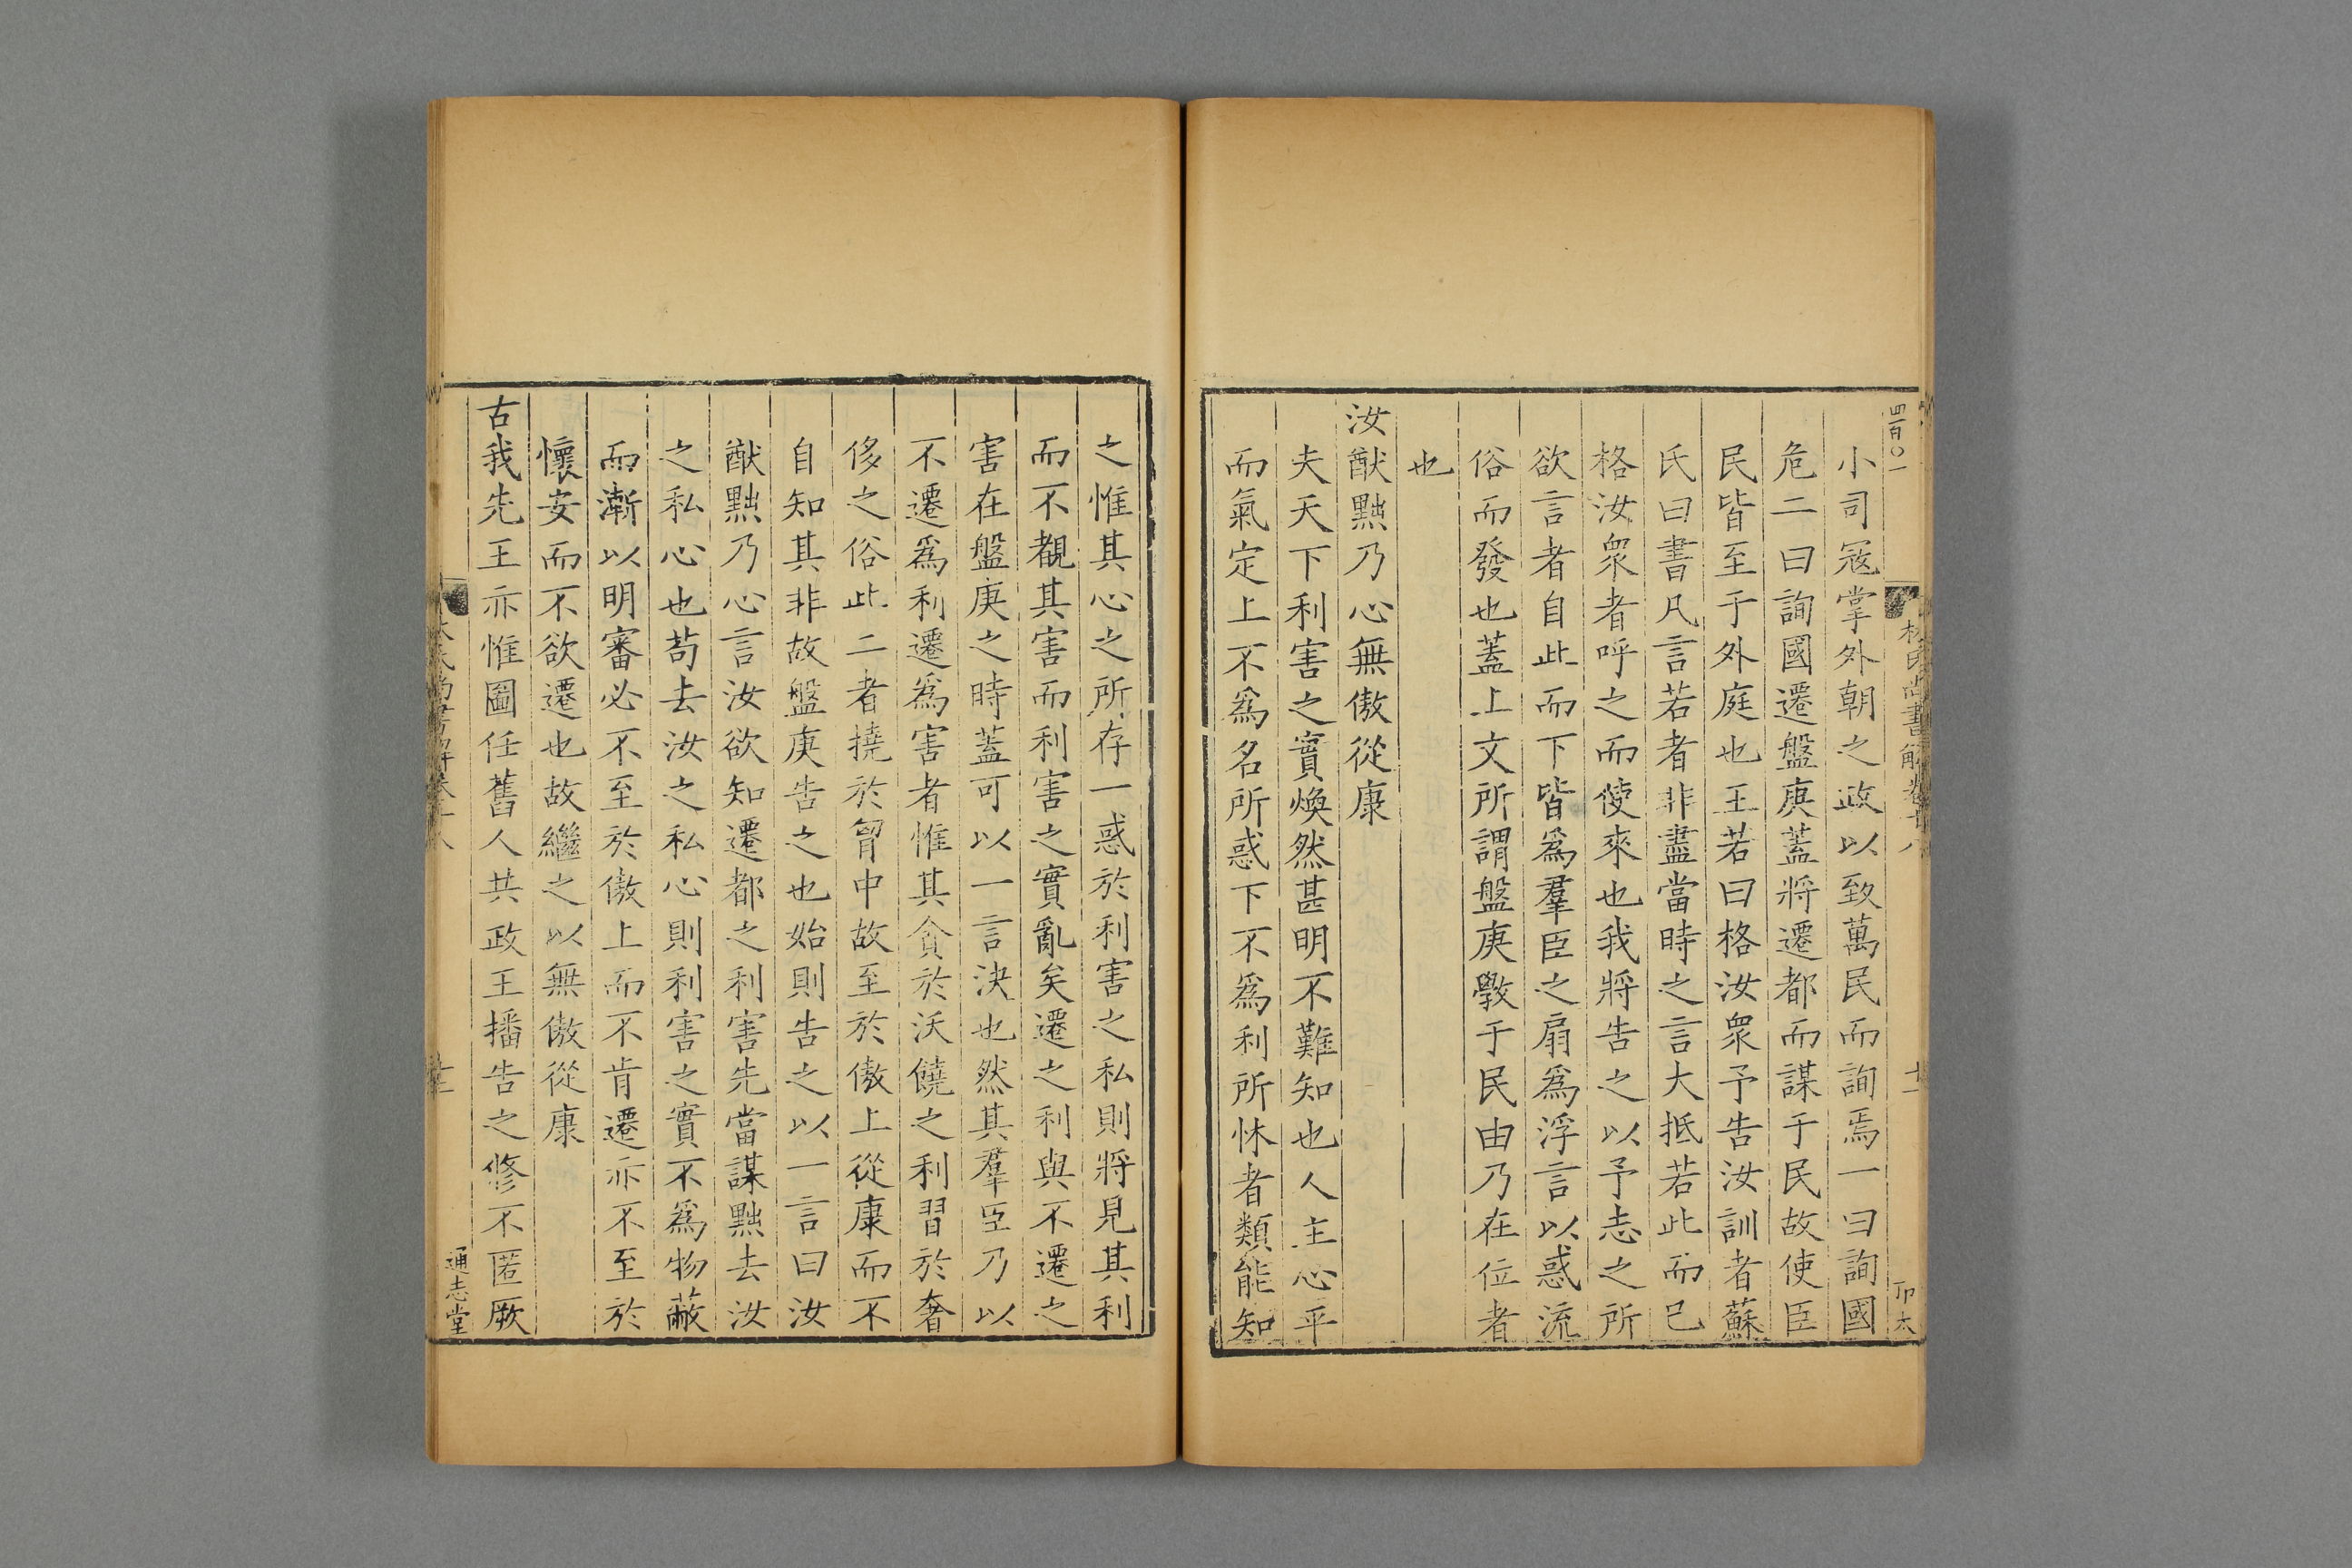 四百〇一
林氏尚書解卷十八
十一
卬太
小司寇掌外朝之政以致萬民而詢焉一曰詢國
危二曰詢國遷盤庚蓋將遷都而謀于民故使臣
民皆至于外庭也王若曰格汝眾予告汝訓者蘇
氏曰書凡言若者非盡當時之言大抵若此而已
格汝眾者呼之而使來也我將告之以予志之所
欲言者自此而下皆爲羣臣之扇爲浮言以惑流
俗而發也蓋上文所謂盤庚斆于民由乃在位者
也
汝猷黜乃心無傲從康
夫天下利害之實煥然甚明不難知也人主心平
而氣定上不爲名所惑下不爲利所怵者類能知
之惟其心之所存一惑於利害之私則將見其利
而不覩其害而利害之實亂矣遷之利與不遷之
害在盤庚之時蓋可以一言決也然其羣臣乃以
不遷爲利遷爲害者惟其貪於沃饒之利習於奢
侈之俗此二者撓於胷中故至於傲上從康而不
自知其非故盤庚告之也始則告之以一言曰汝
猷黜乃心言汝欲知遷都之利害先當謀黜去汝
之私心也苟去汝之私心則利害之實不爲物蔽
而漸以明審必不至於傲上而不肯遷亦不至於
懷安而不欲遷也故繼之以無傲從康
古我先王亦惟圖任舊人共政王播告之修不匿厥
通志堂